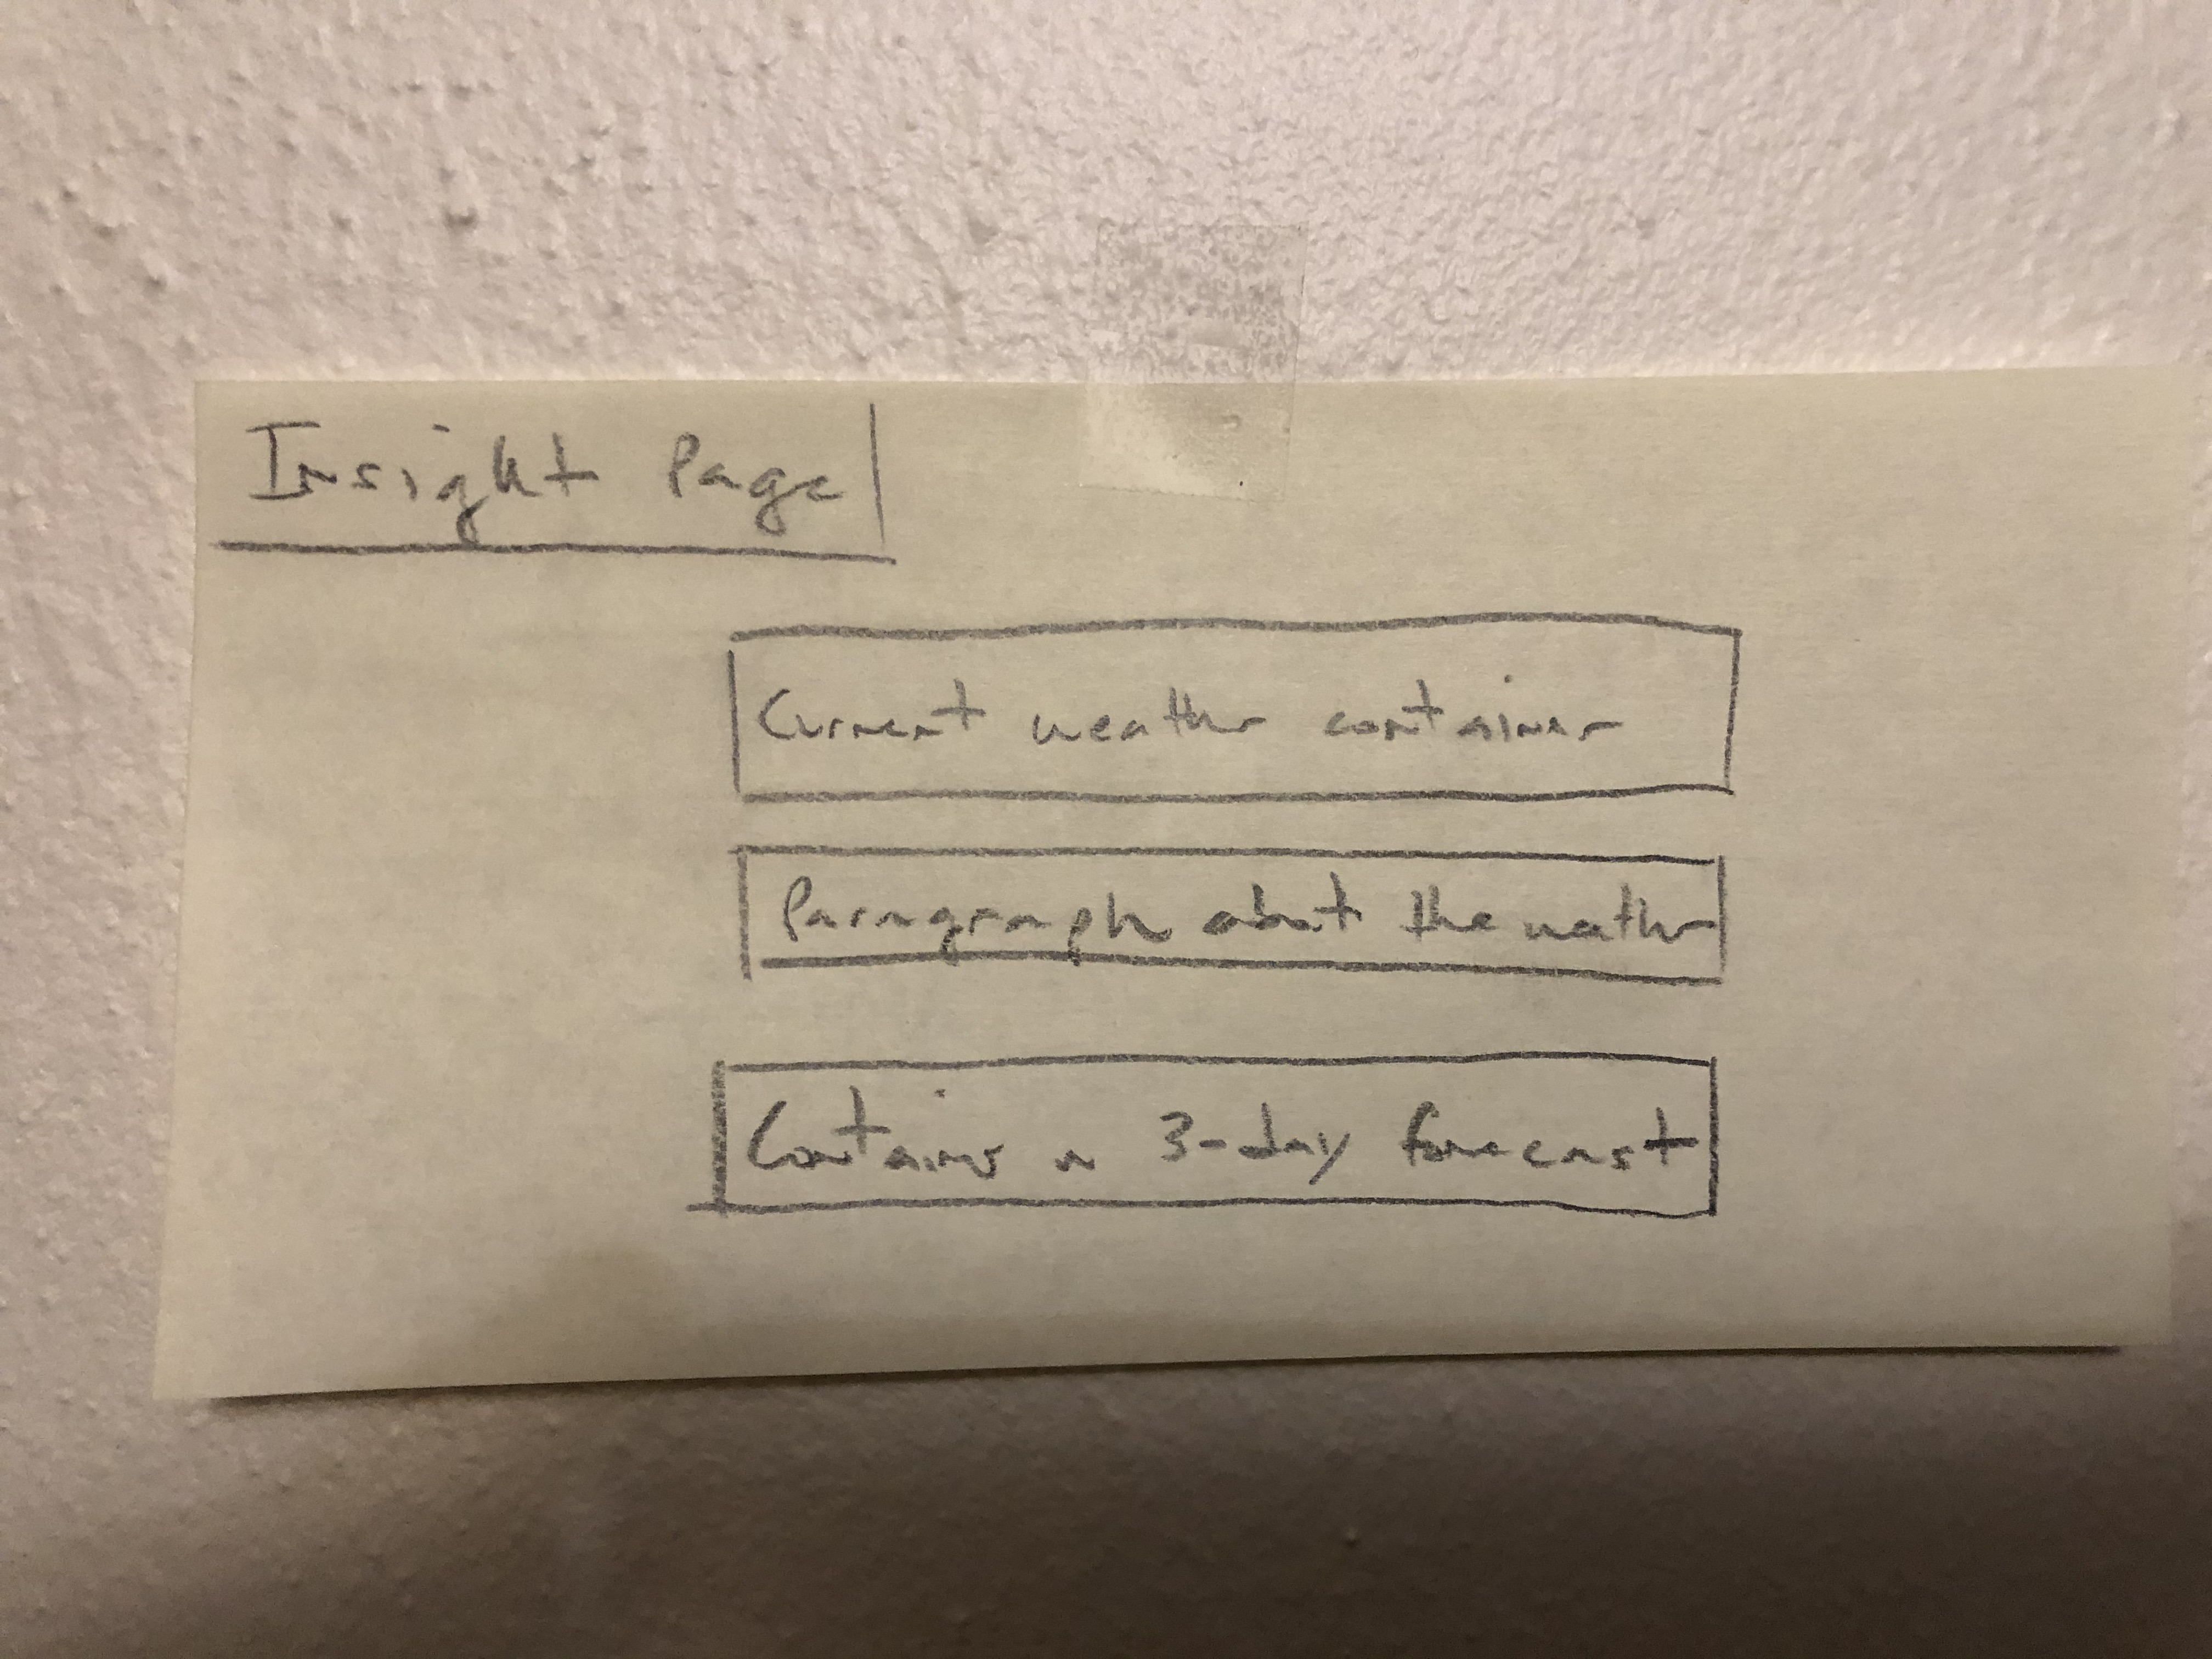 Insight Page
Current weather container
Paragraph about the weather
Contains a 3-day forecast